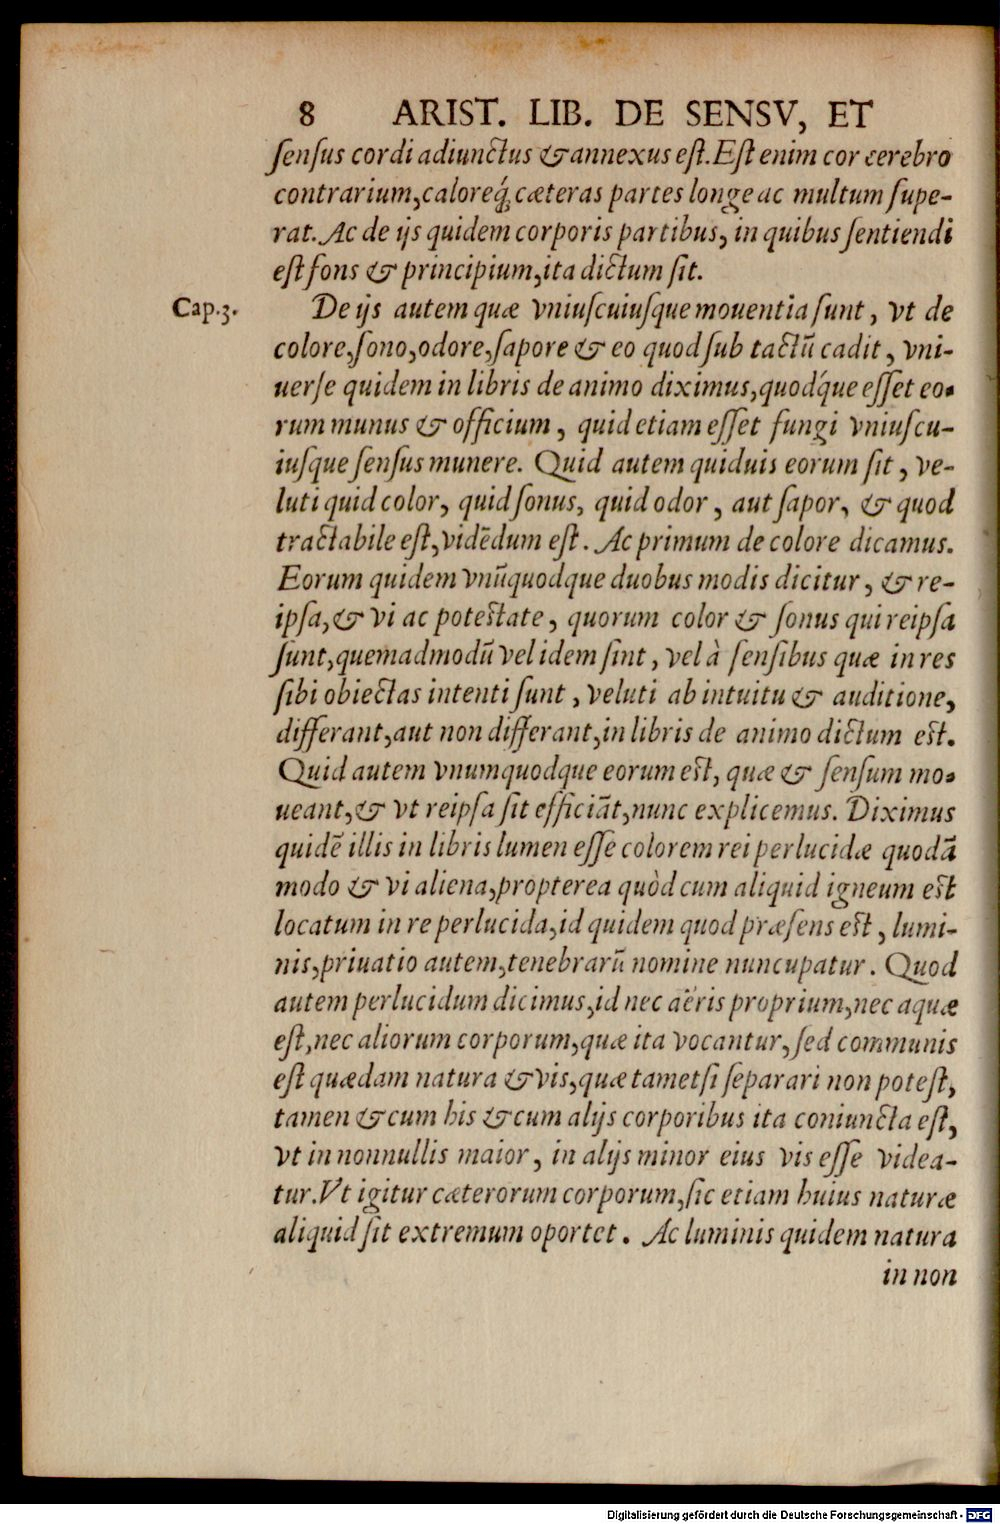 8 ARIST. LIB. DE SENSV, ET
ſenſus cordi adiunctus & annexus eſt. Eſt enim cor cerebro
contrarium, caloreq́; cæteras partes longe ac multum ſupe-
rat. Ac de ijs quidem corporis partibus, in quibus ſentiendi
eſt fons & principium, ita dictum ſit.
Cap. 3.
De ijs autem quæ vniuſcuiuſque mouentia ſunt, vt de
colore, ſono, odore, ſapore & eo quod ſub tactũ cadit, vni-
uerſe quidem in libris de animo diximus, quodq́ue eſſet eo-
rum munus & officium, quid etiam eſſet fungi vniuſcu-
iuſque ſenſus munere. Quid autem quiduis eorum ſit, ve-
luti quid color, quid ſonus, quid odor, aut ſapor, & quod
tractabile eſt, vidẽdum eſt. Ac primum de colore dicamus.
Eorum quidem vnũquodque duobus modis dicitur, & re-
ipſa, & vi ac poteſtate, quorum color & ſonus qui reipſa
ſunt, quemadmodũ vel idem ſint, vel à ſenſibus quæ in res
ſibi obiectas intenti ſunt, veluti ab intuitu & auditione,
differant, aut non differant, in libris de animo dictum eſt.
Quid autem vnumquodque eorum eſt, quæ & ſenſum mo-
ueant, & vt reipſa ſit efficiãt, nunc explicemus. Diximus
quidẽ illis in libris lumen eſſe colorem rei perlucidæ quodã
modo & vi aliena, propterea quòd cum aliquid igneum eſt
locatum in re perlucida, id quidem quod præſens eſt, lumi-
nis, priuatio autem, tenebrarũ nomine nuncupatur. Quod
autem perlucidum dicimus, id nec aëris proprium, nec aquæ
eſt, nec aliorum corporum, quæ ita vocantur, ſed communis
eſt quædam natura & vis, quæ tametſi ſeparari non poteſt,
tamen & cum his & cum alijs corporibus ita coniuncta eſt,
vt in nonnullis maior, in alijs minor eius vis eſſe videa-
tur. Vt igitur cæterorum corporum, ſic etiam huius naturæ
aliquid ſit extremum oportet. Ac luminis quidem natura
in non
Digitalisierung gefördert durch die Deutsche Forschungsgemeinschaft - DFG